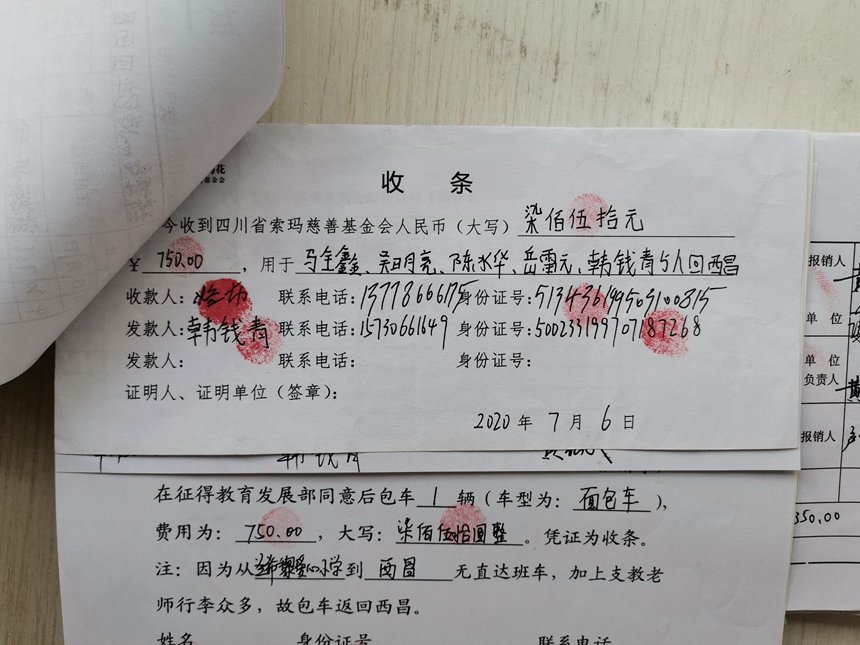 基金会
收 条
今收到四川省索玛慈善基金会人民币（大写）柒佰伍拾元
¥ 750.00 ，用于 马全鑫、吴明亮、陈水华、岳雷元、韩钱青5人回西昌
收款人： 联系电话：13778666175 身份证号：513436199503100815
发款人：韩钱青 联系电话：15730661649 身份证号：500233199707187268
发款人： 联系电话： 身份证号：
证明人、证明单位（签章）：
2020 年 7 月 6 日
在征得教育发展部同意后包车 1 辆（车型为： 面包车 ），
费用为： 750.00 ，大写： 柒佰伍拾圆整 。凭证为收条。
注：因为从 小学到 西昌 无直达班车，加上支教老
师行李众多，故包车返回西昌。
姓名 身份证号 联系电话
报销人
单 位
单 位
负责人
报销人
350.00